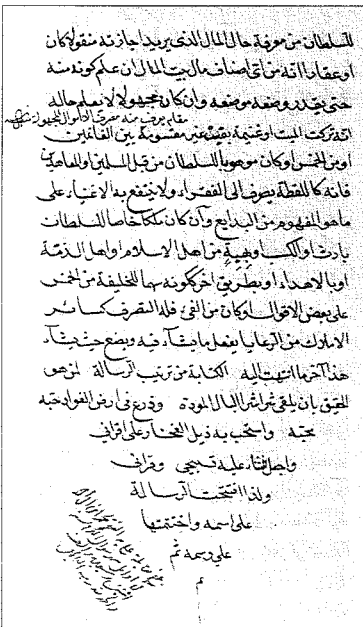 للسلطان من معرفة حال المال الذى يريد اجازته منقولا كان
او عقارا انه من اى اصناف مال بيت المال ان علم كونه منه
حتى يقدر وضعه موضعه وان كان مجهولا لا يعلم حاله
انه تركت الميت او غنيمة بقيت غير مقسومة بين الغانمين
او من الخمس او كان موهوبا للسلطان من قبل المسلمين والمعاهدين
فانه كاللقطة يصرف الى الفقراء ولا ينتفع به الاغنياء على
ما هو المفهوم من البدايع وان كان ملكا خاصا للسلطان
بارث او اكتساب وهبة من اهل الاسلام او اهل الذمة
او بالاهداء او بطريق اخر ككونه سهما للخليفة من الخمس
على بعض الاقوال او كان من الفئ فله التصرف كسائر
الاملاك من الرعايا يفعل ما يشاء فيه ويضع حيث يشاء
هذا آخر ما انتهت اليه الكتابة من ترتيب الرسالة لمن هو
الحقيق بان يلقى شراشر البال المودة وزرع فى ارض الفواد حبه
محبته واسحب به ذيل الفخار على اقرانى
واجعل ثناء عليه تسبيحى وقرانى
ولذا افتتحت الرسالة
على اسمه واختتمتها
على رسمه تم
م